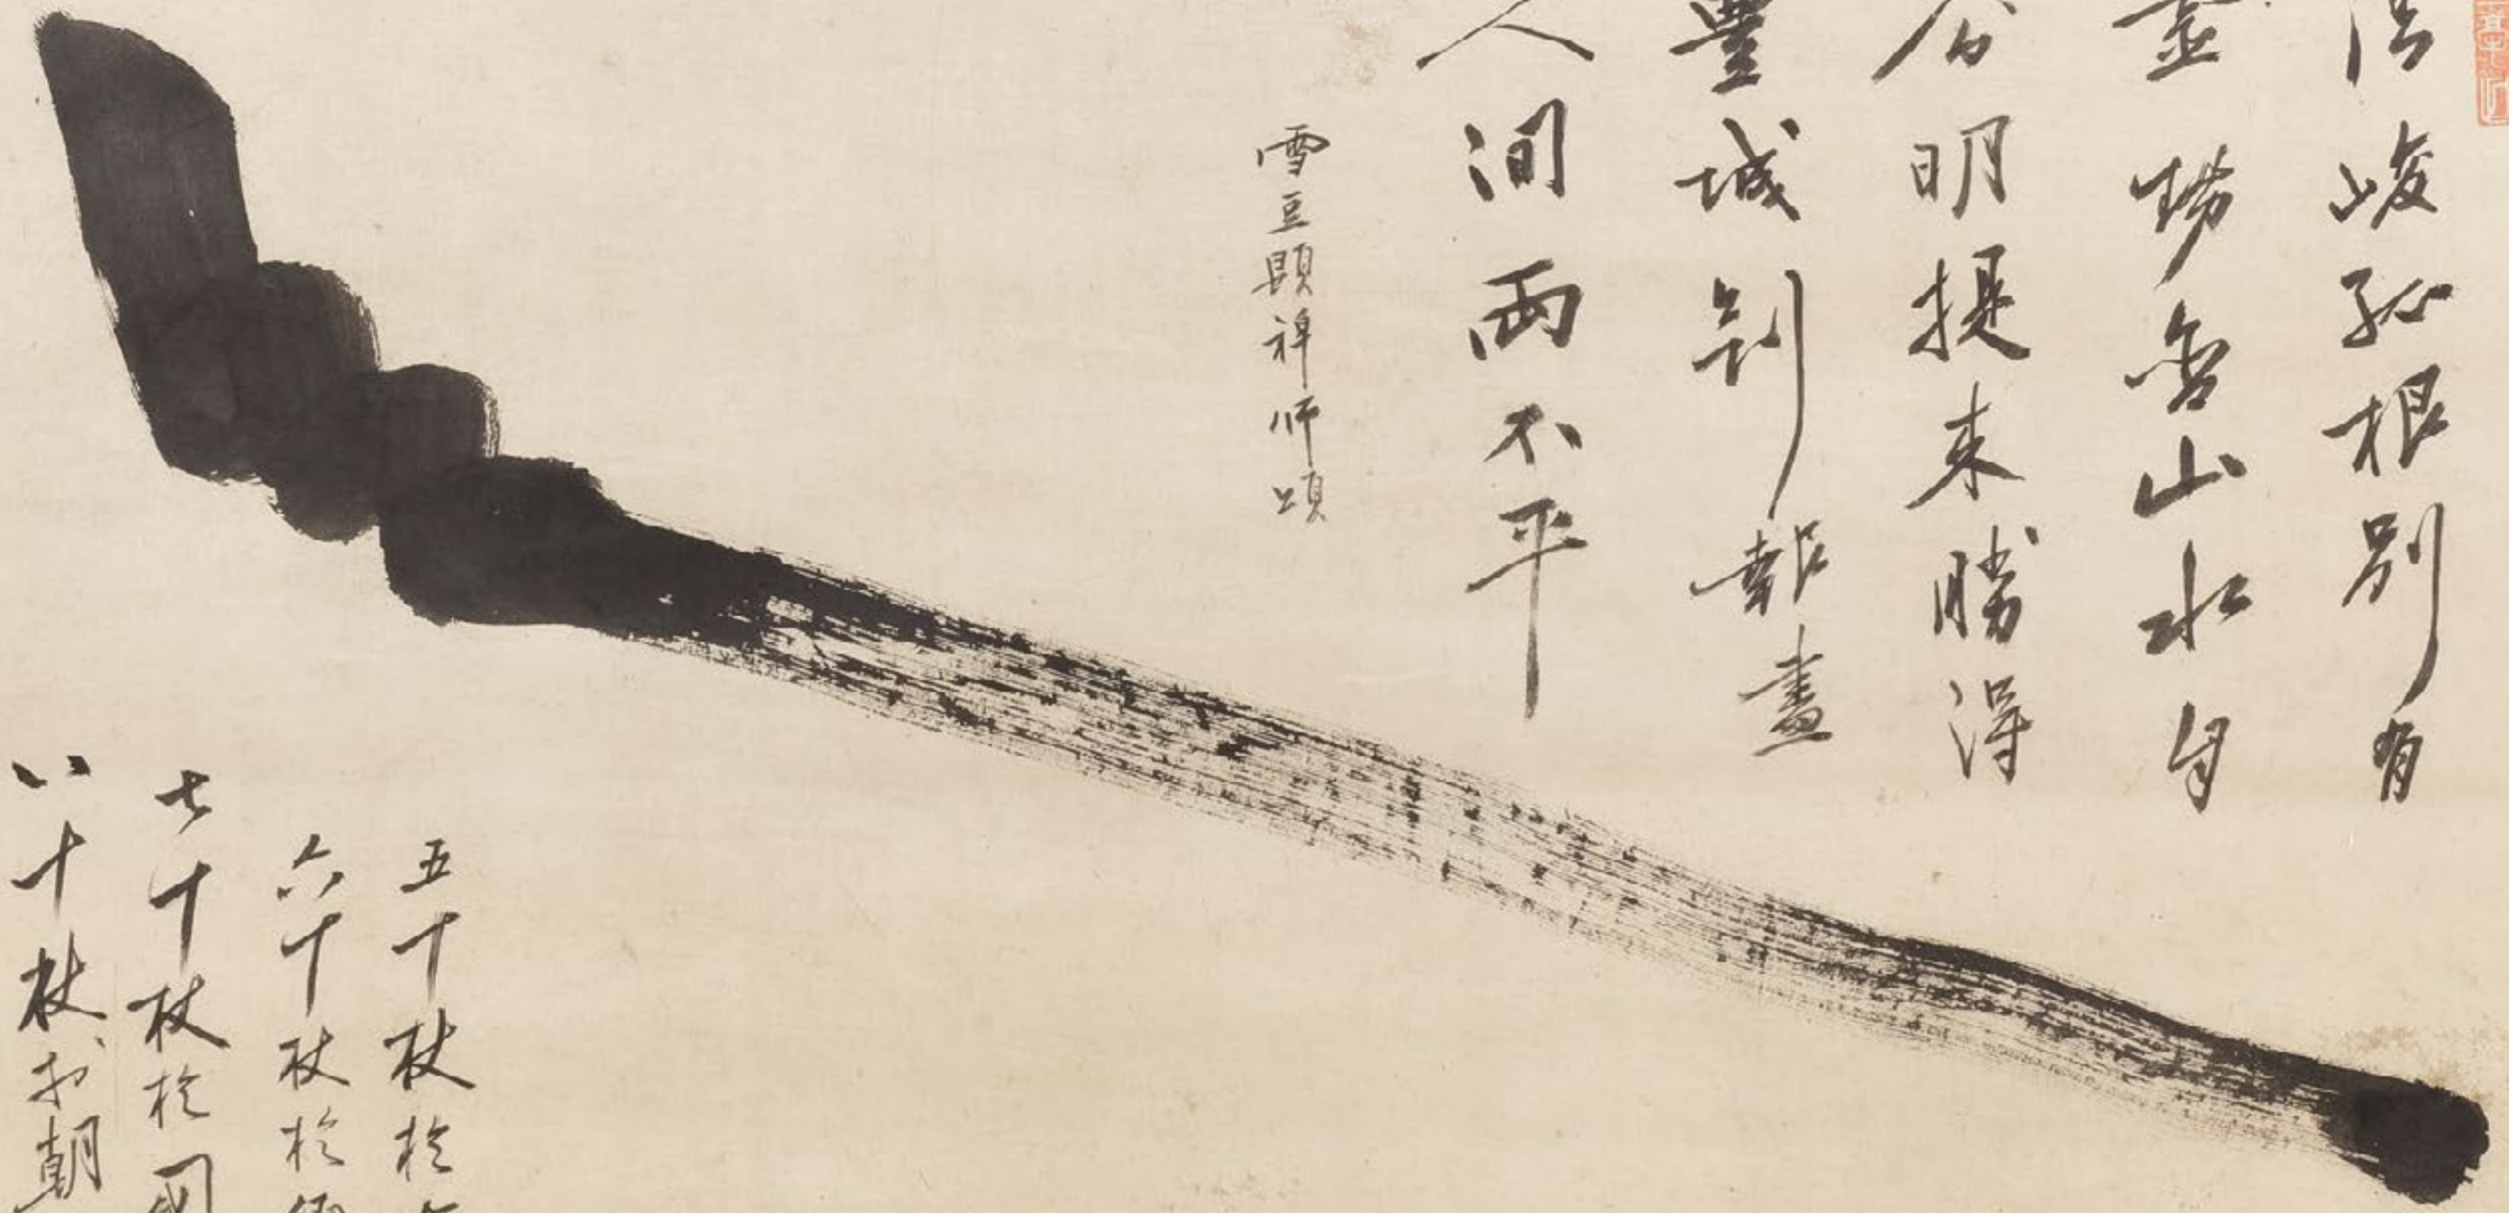 峻孤根別有
山水自
分明提来勝得
豊城剣報盡
人间兩不平
雪豆顕禅师頌
五十杖於
六十杖於
七十杖於國
八十杖於朝